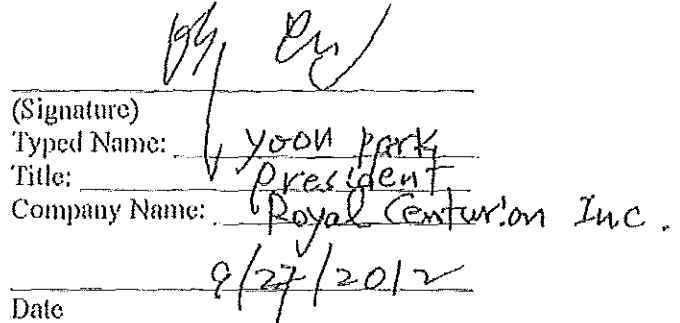 (Signature)
Typed Name: Yoon Park
Title: President
Company Name: Royal Centurion Inc.
9/27/2012
Date